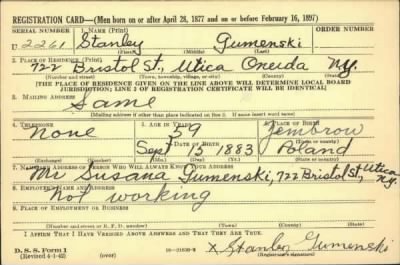 REGISTRATION CARD—(Men born on or after April 28, 1877 and on or before February 16, 1897)
SERIAL NUMBER 1. NAME (Print) ORDER NUMBER
U 2261 Stanley Gumenski
(First) (Middle) (Last)
2. PLACE OF RESIDENCE (Print)
722 Bristol St, Utica Oneida N.Y.
(Number and street) (Town, township, village, or city) (County) (State)
[THE PLACE OF RESIDENCE GIVEN ON THE LINE ABOVE WILL DETERMINE LOCAL BOARD
JURISDICTION; LINE 2 OF REGISTRATION CERTIFICATE WILL BE IDENTICAL]
3. MAILING ADDRESS
Same
[Mailing address if other than place indicated on line 2. If same insert word same]
4. TELEPHONE 5. AGE IN YEARS 6. PLACE OF BIRTH
None 59 Zembrow
DATE OF BIRTH (Town or county)
Sept 15 1883 Poland
(Exchange) (Number) (Mo.) (Day) (Yr.) (State or country)
7. NAME AND ADDRESS OF PERSON WHO WILL ALWAYS KNOW YOUR ADDRESS
Mr Susana Gumenski, 722 Bristol St, Utica N.Y.
8. EMPLOYER'S NAME AND ADDRESS
Not working
9. PLACE OF EMPLOYMENT OR BUSINESS
(Number and street or R. F. D. number) (Town) (County) (State)
I AFFIRM THAT I HAVE VERIFIED ABOVE ANSWERS AND THAT THEY ARE TRUE.
D. S. S. Form 1
(Revised 4-1-42) (over) 16—21630-2 x Stanley Gumenski